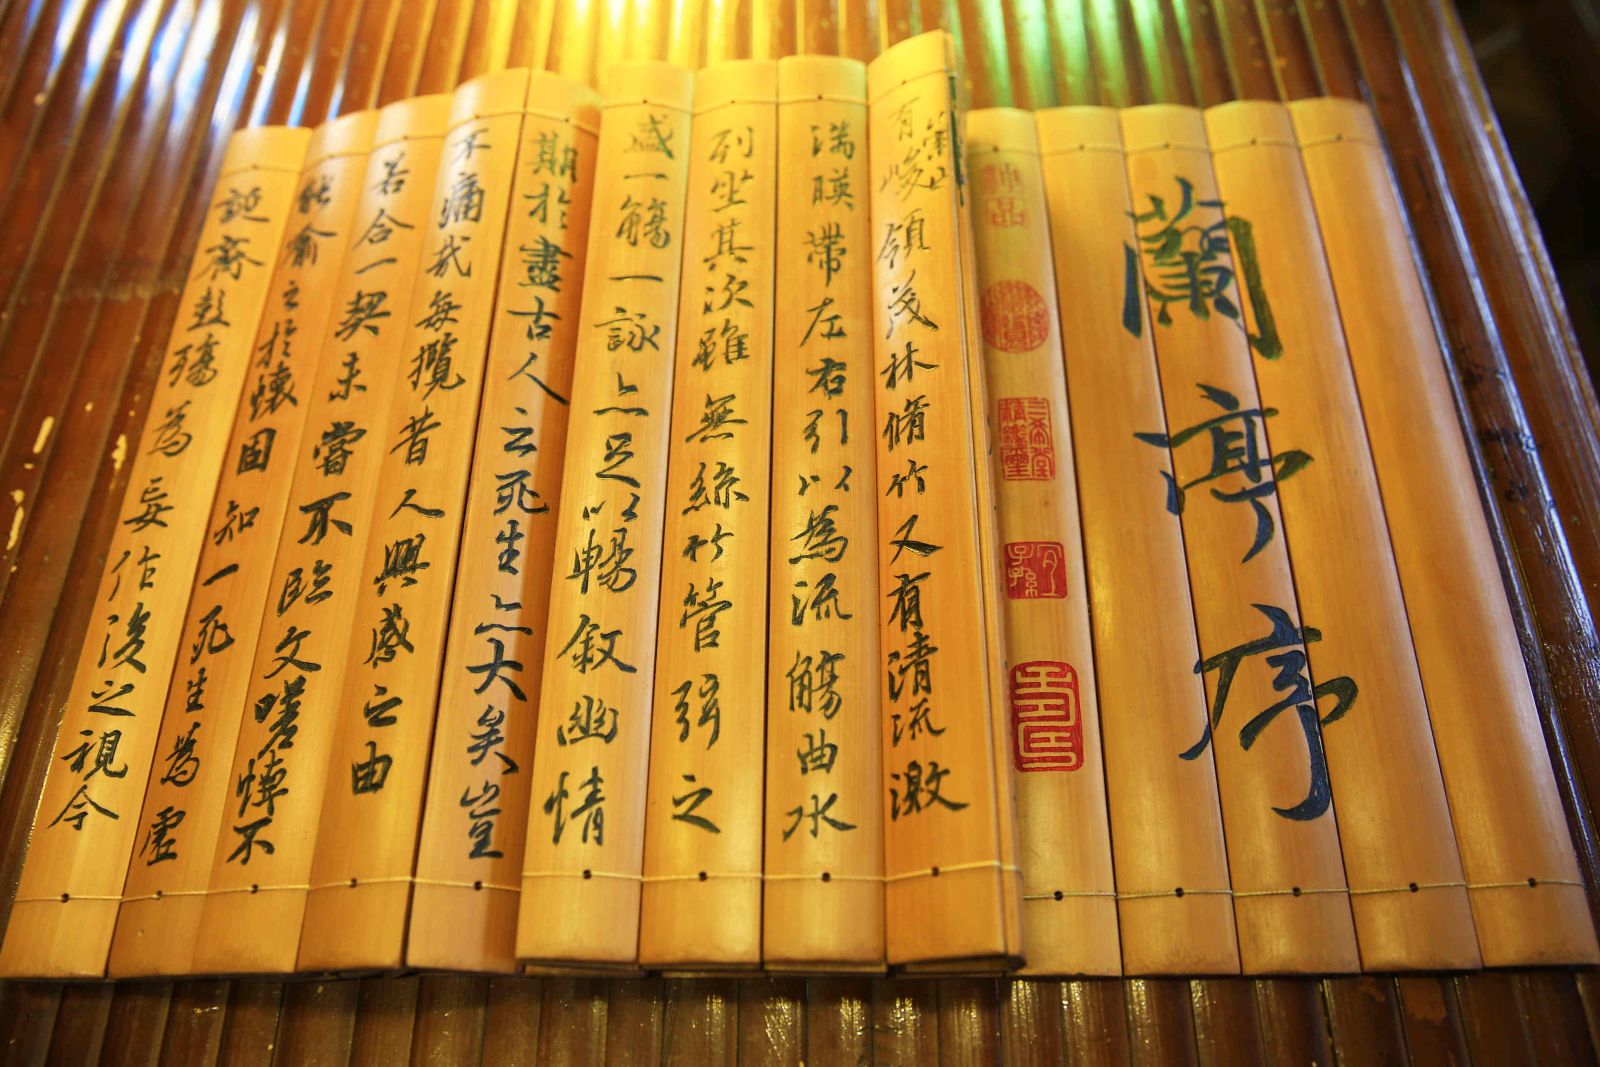 蘭亭序
神品
有崇山峻領茂林脩竹又有清流激
湍暎帶左右引以為流觴曲水
列坐其次雖無絲竹管弦之
盛一觴一詠亦足以暢敘幽情
期於盡古人云死生亦大矣豈
不痛哉每攬昔人興感之由
若合一契未嘗不臨文嗟悼不
能喻之於懷固知一死生為虛
誕齊彭殤為妄作後之視今